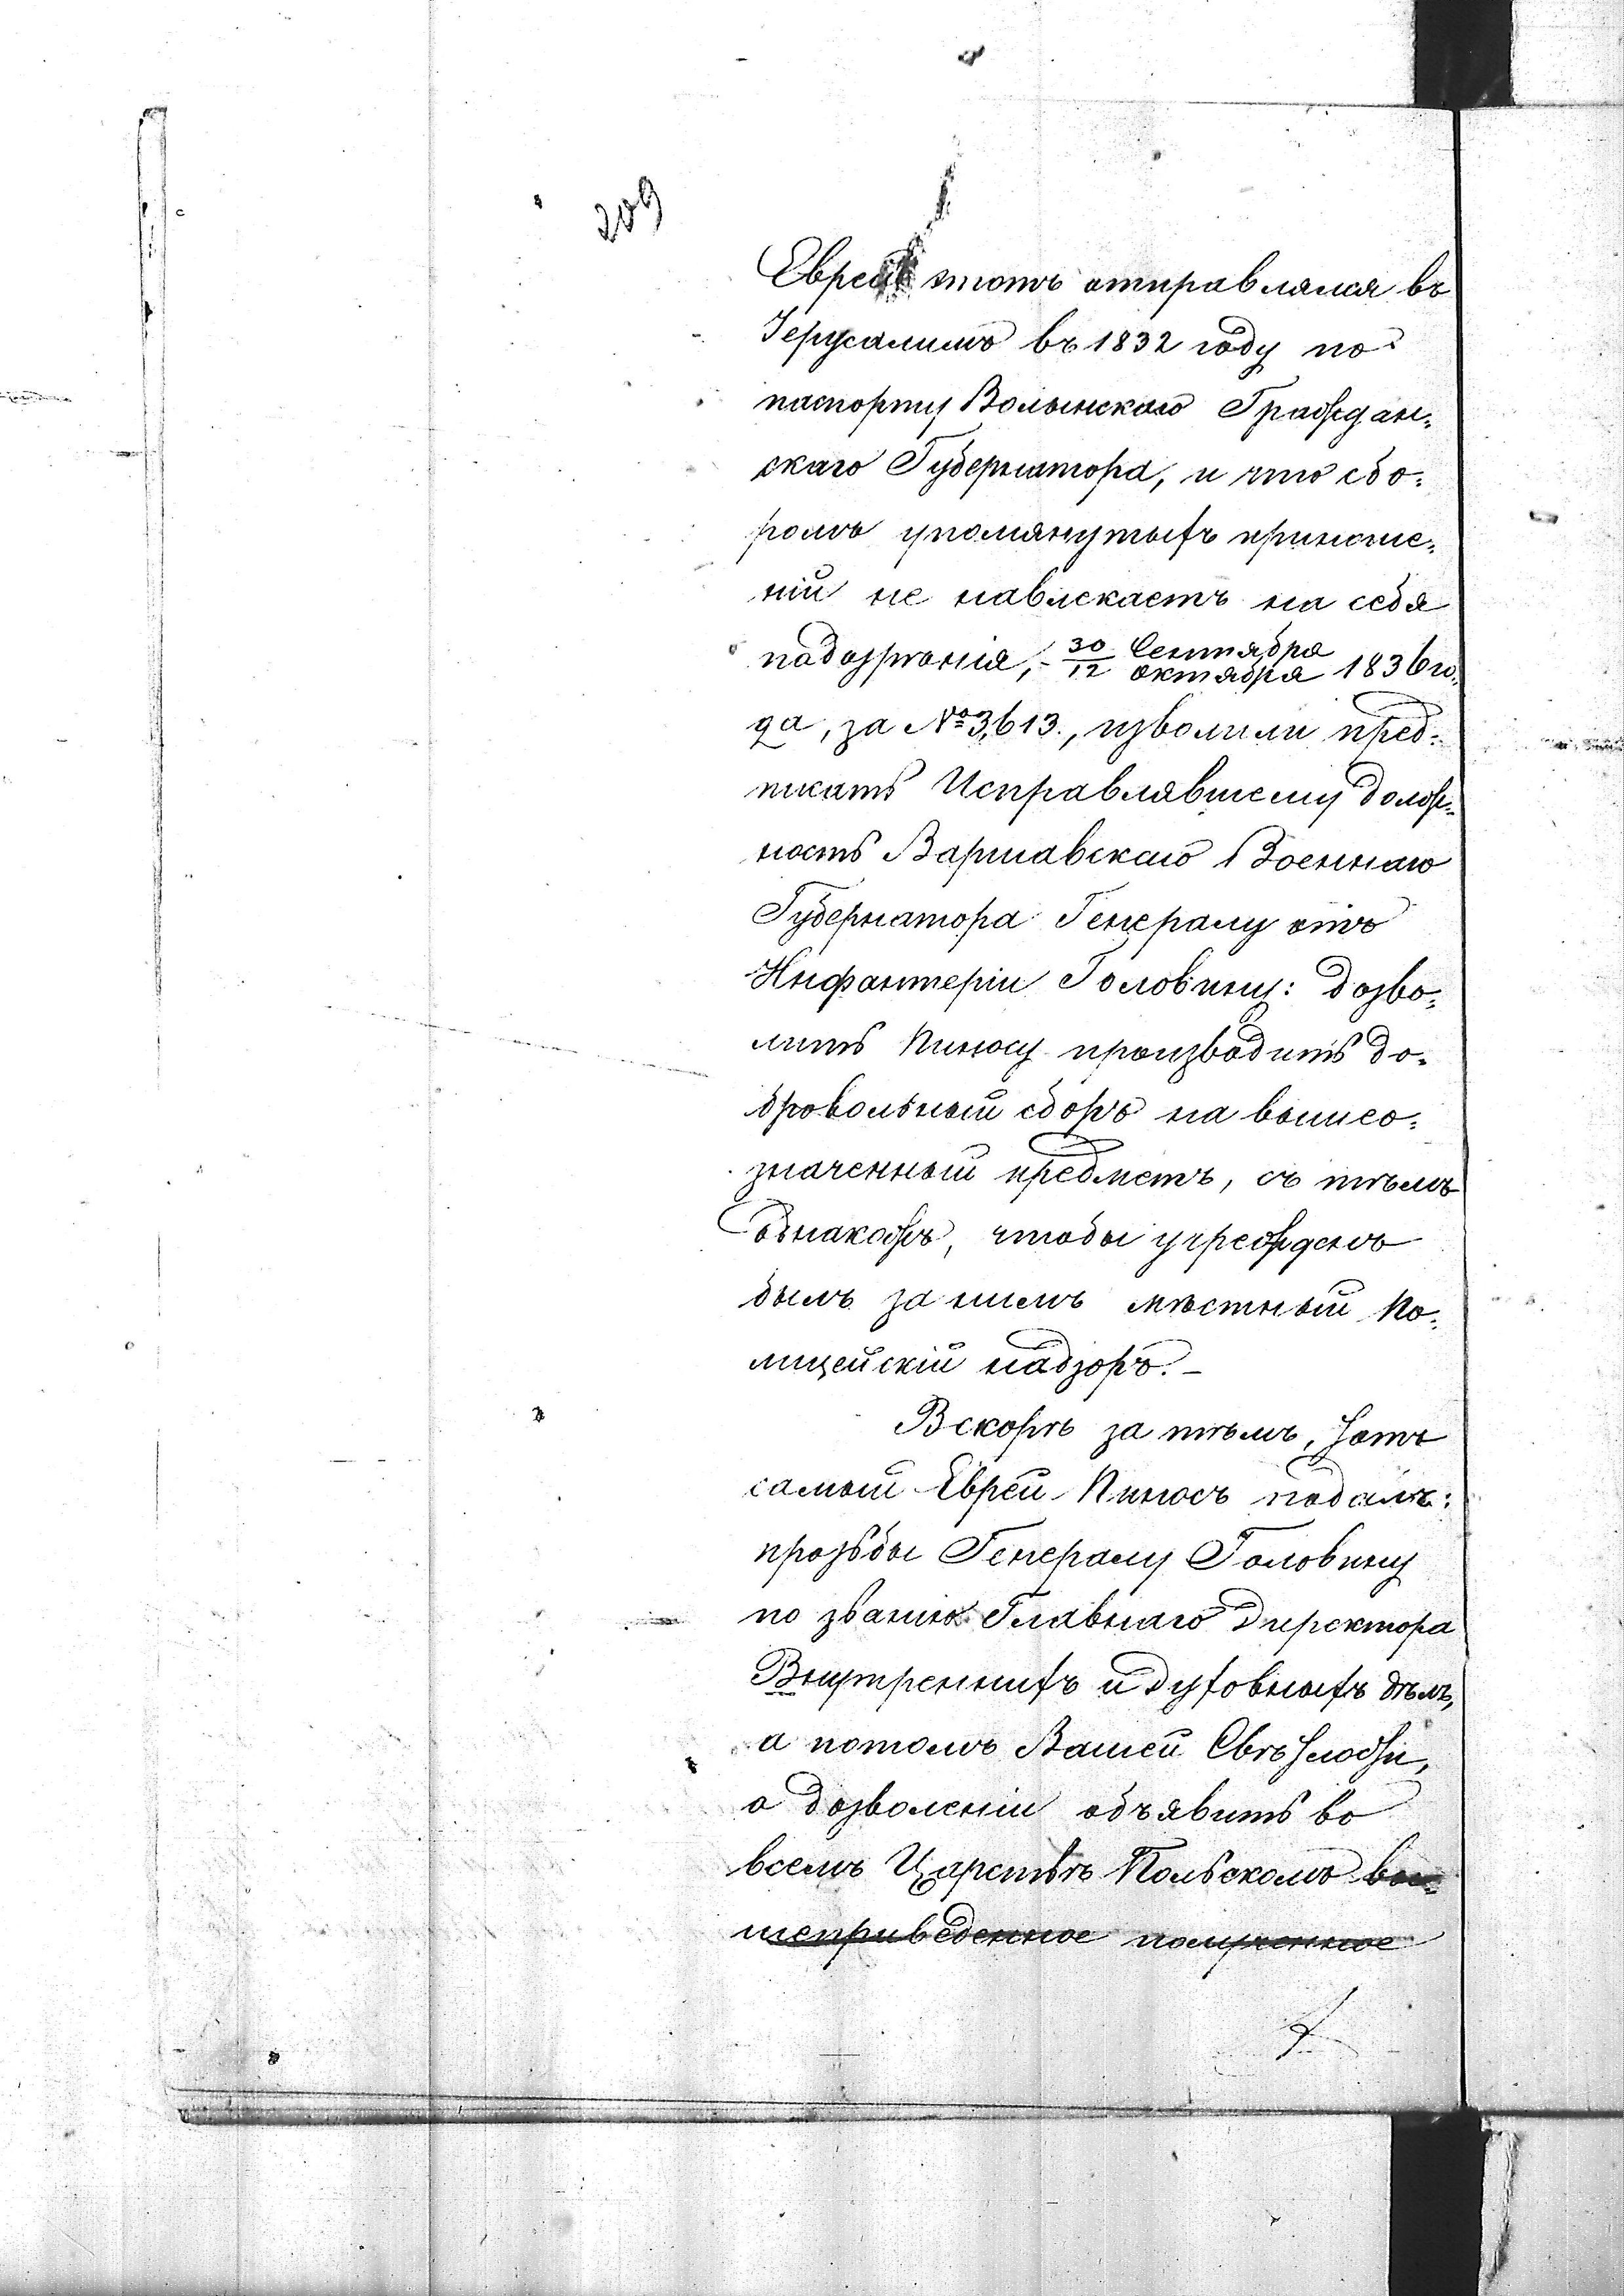 209
Еврей этотъ отправлялся въ
Іерусалимъ въ 1832 году по
паспорту Волынскаго Граждан-
скаго Губернатора, и что сбо-
ромъ упомянутыхъ приноше-
ній не навлекаетъ на себя
подозрѣнія, - 30/12 Сентября/Октября 1836 го-
да, за № 3,613., изволили пред-
писать Исправлявшему долж-
ность Варшавскаго Военнаго
Губернатора Генералу отъ
Инфантеріи Головину: дозво-
лить Пинюсу производить до-
бровольный сборъ на вышео-
значенный предметъ, съ тѣмъ
однакожъ, чтобы учрежденъ
былъ за нимъ мѣстный По-
лицейскій надзоръ. -
Вскорѣ за тѣмъ, тотъ
самый Еврей Пинюсъ подалъ:
прозьбы Генералу Головину
по званію Главнаго Директора
Внутреннихъ и Духовныхъ дѣлъ,
а потомъ Вашей Свѣтлости,
о дозволеніи объявить во
всемъ Царствѣ Польскомъ вы-
шеприведенное полученное